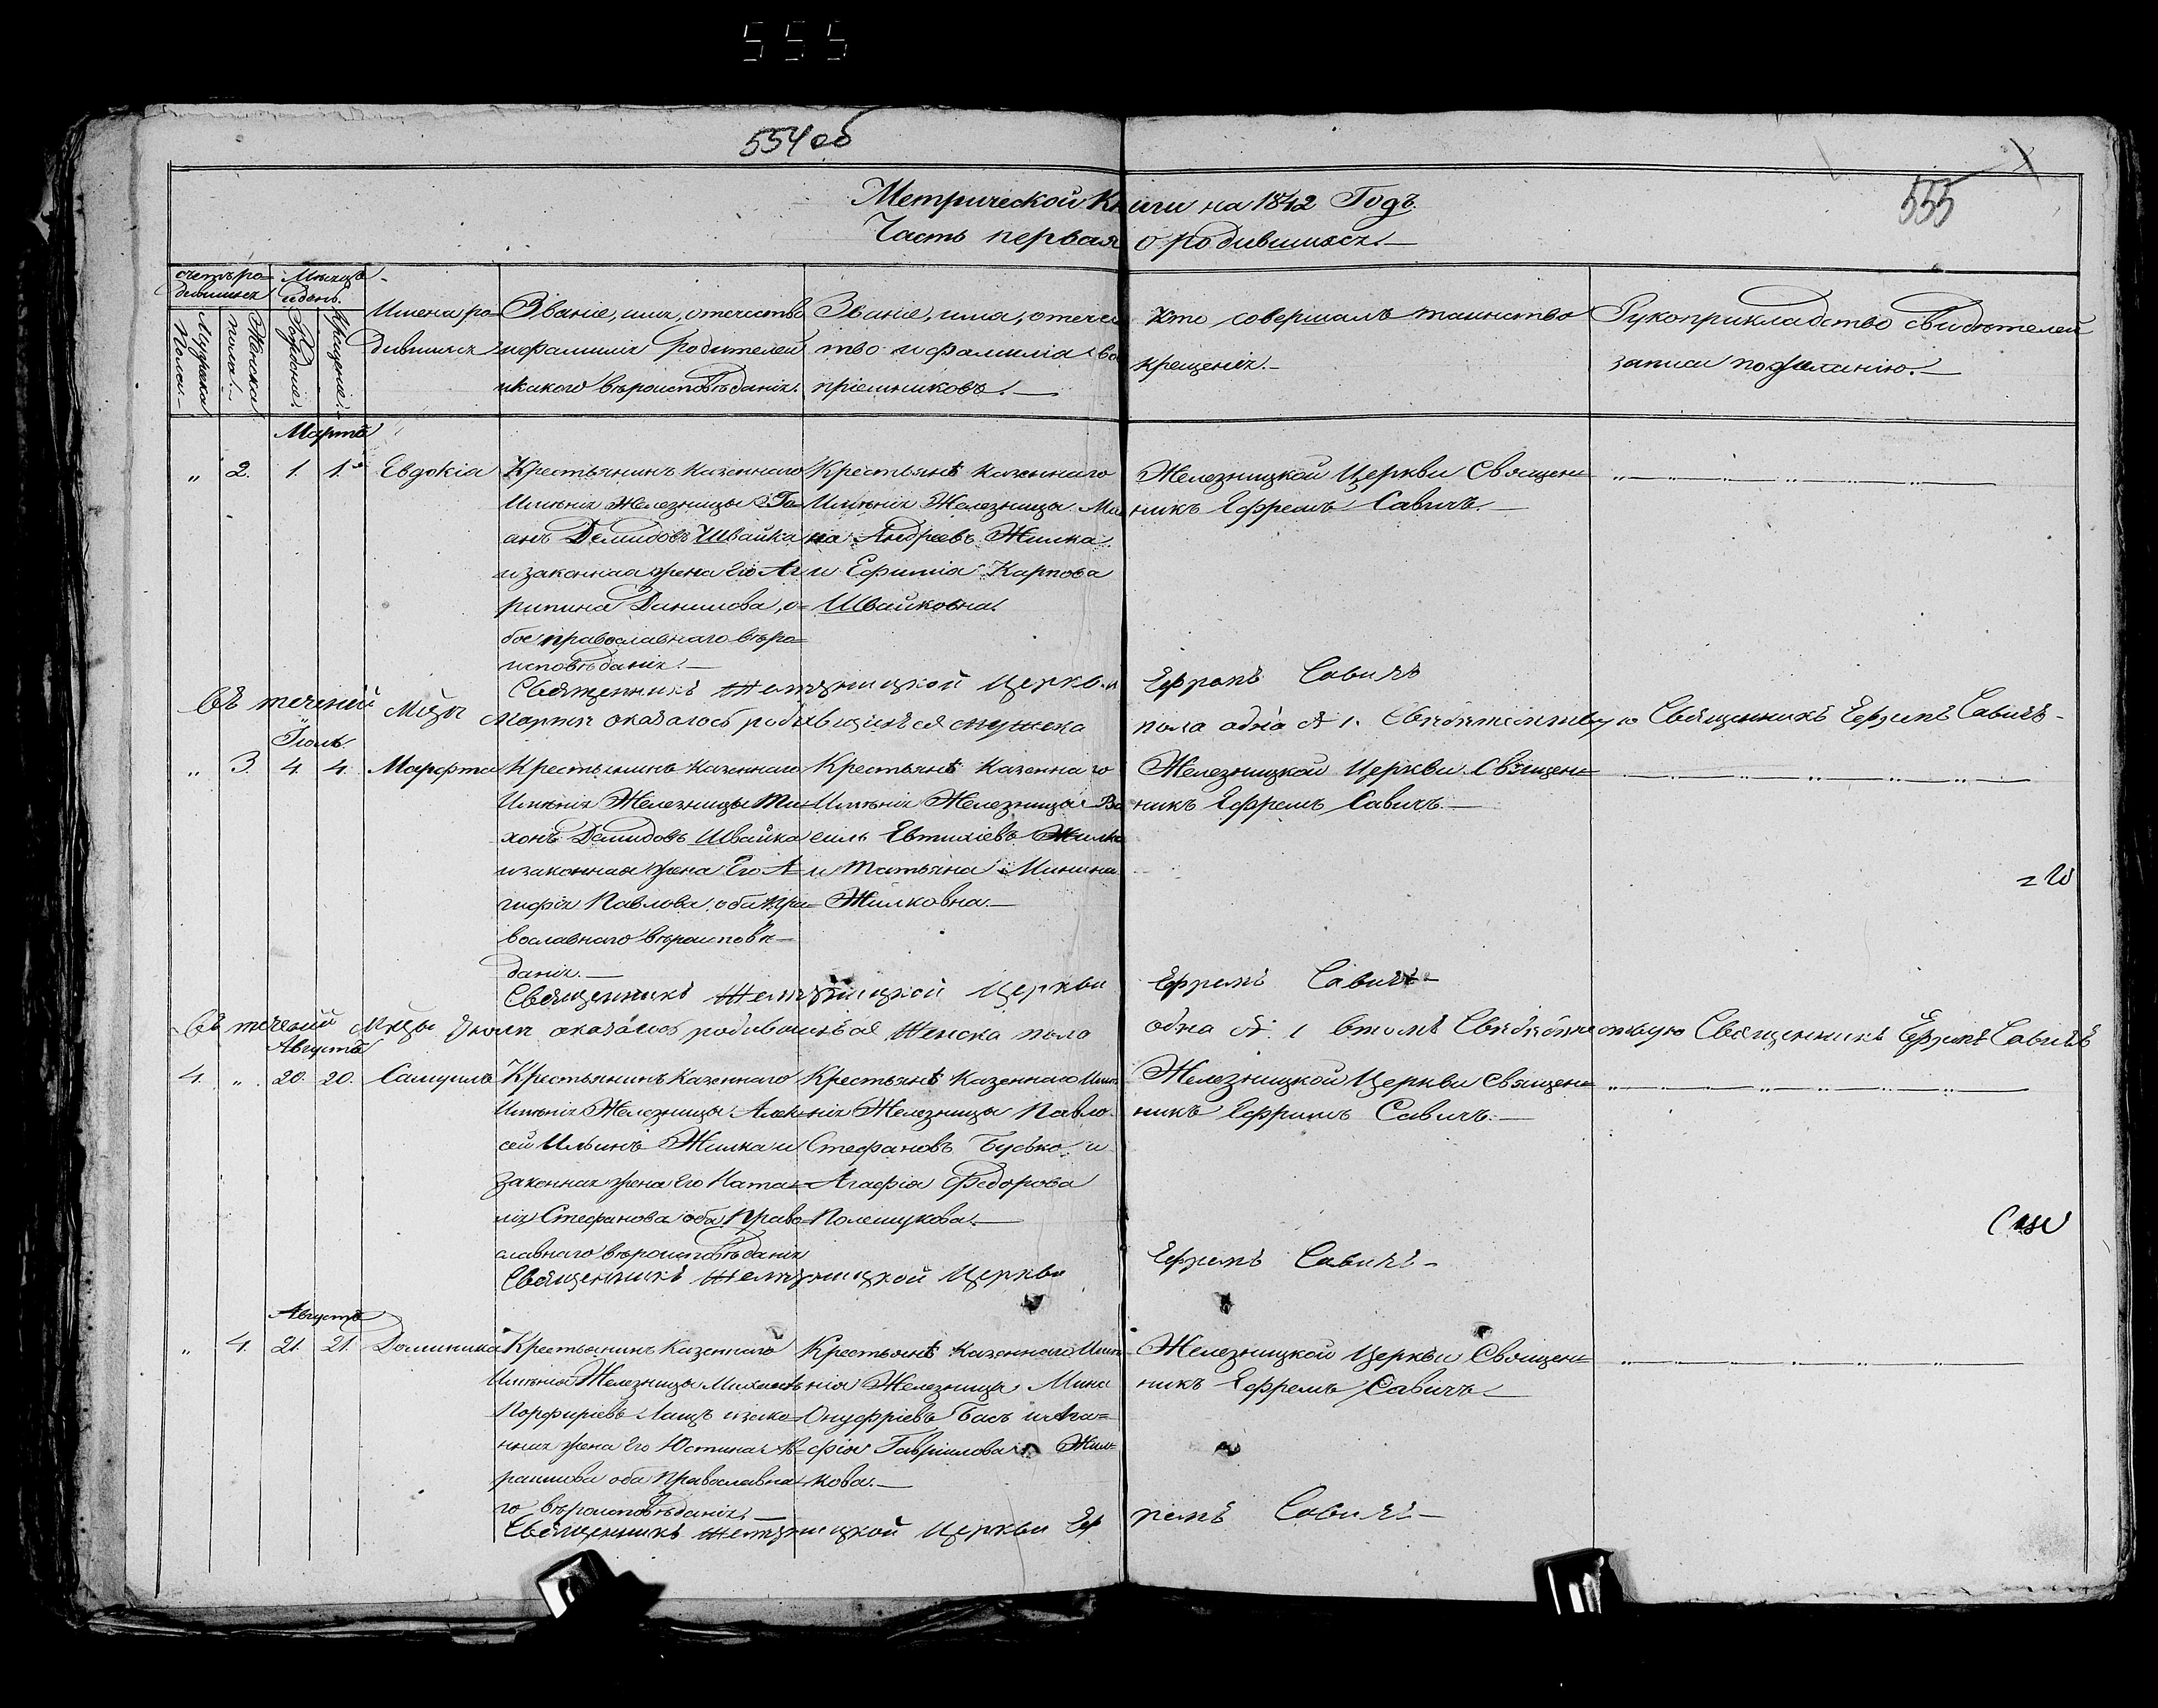 555
554 об
555
Метрической Книги на 1842 Годъ.
Часть первая о родившихся.—
счетъ ро=
дившихся
Мужеска
Пола.—
Женска
пола.—
Мѣсяцъ
и день.
Рожденіе.
Крещеніе.
Имена ро=
дившихся
Званіе, имя, отечество
и фамилія родителей
и какого вѣроисповѣданія.
Званіе, имя, отечес
тво и фамилія вос
пріемниковъ.—
Кто совершалъ таинство
крещенія.—
Рукоприкладство свидѣтелей
записи по желанію.—
Мартъ
„ 2. 1. 1. Евдокія
Крестьянинъ казеннаго
Имѣнія Железницы
анъ Демидовъ Швайка
и законная жена Его Аг
рипина Данилова, о=
бое православнаго вѣро=
исповѣданія.—
Крестьянѣ казеннаго
Имѣнія Железницы Ми
на Андреевъ Жилка
и Ефимія Карпова
Швайковна.
Железницкой Церкви Священ=
никъ Ефремъ Савичъ.—
Священникъ Железницкой Церкви Ефремъ Савичъ
въ теченій Мѣсяца Марта оказалось родившихся
пола одна № 1. Свидѣтельствую Священникъ Ефремъ Савичъ-
Іюль.
„ 3. 4. 4. Марфта
Крестьянинъ казеннаго
Имѣнія Железницы Ти=
хонъ Демидовъ Швайка
и законная жена Его А=
гафія Павлова, оба Пра=
вославнаго вѣроисповѣ—
данія.—
Крестьянѣ Казеннаго
Имѣнія Железница Ва
силь Евтихіевъ Жилка
и Татьяна Минина
Жилковна.—
Железницкой Церкви Священ=
никъ Ефремъ Савичъ.—
Священникъ Железницкой Церкви Ефремъ Савичъ-
въ теченій Мѣсяца Июля оказалось родившихся Женска пола
одна №: 1 въ томъ Свидѣтельствую Священникъ Ефремъ Савичъ
Августъ
4. „ 20. 20. Самуилъ
Крестьянинъ Казеннаго
Имѣнія Железницы Алек=
сей Ильинъ Жилка и
законная жена Его Ната=
лія Стефанова оба Право=
славнаго вѣроисповѣданія
Крестьянѣ Казеннаго Имѣ
нія Железницы Павло
Стефановъ Бусько и
Агафія Федорова
Полещукова.—
Железницкой Церкви Священ=
никъ Ефремъ Савичъ.—
Священникъ Железницкой Церкви Ефремъ Савичъ-
Августъ
„ 4. 21. 21. Доминика
Крестьянинъ Казеннаго
Имѣнія Железницы Михаилъ
Порфиріевъ Лащъ и зако=
нная жена Его Юстина
оба Православна=
го вѣроисповѣданія.—
Крестьянѣ Казеннаго Имѣ
нія Железница Мина
Онуфріевъ Басъ и Ага=
фія Гавріилова Жил=
кова.—
Железницкой Церкви Священ=
никъ Ефремъ Савичъ.—
Священникъ Железницкой Церкви Еф ремъ Савичъ-